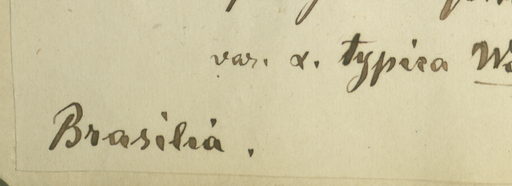 var. α. typica
Brasilia.